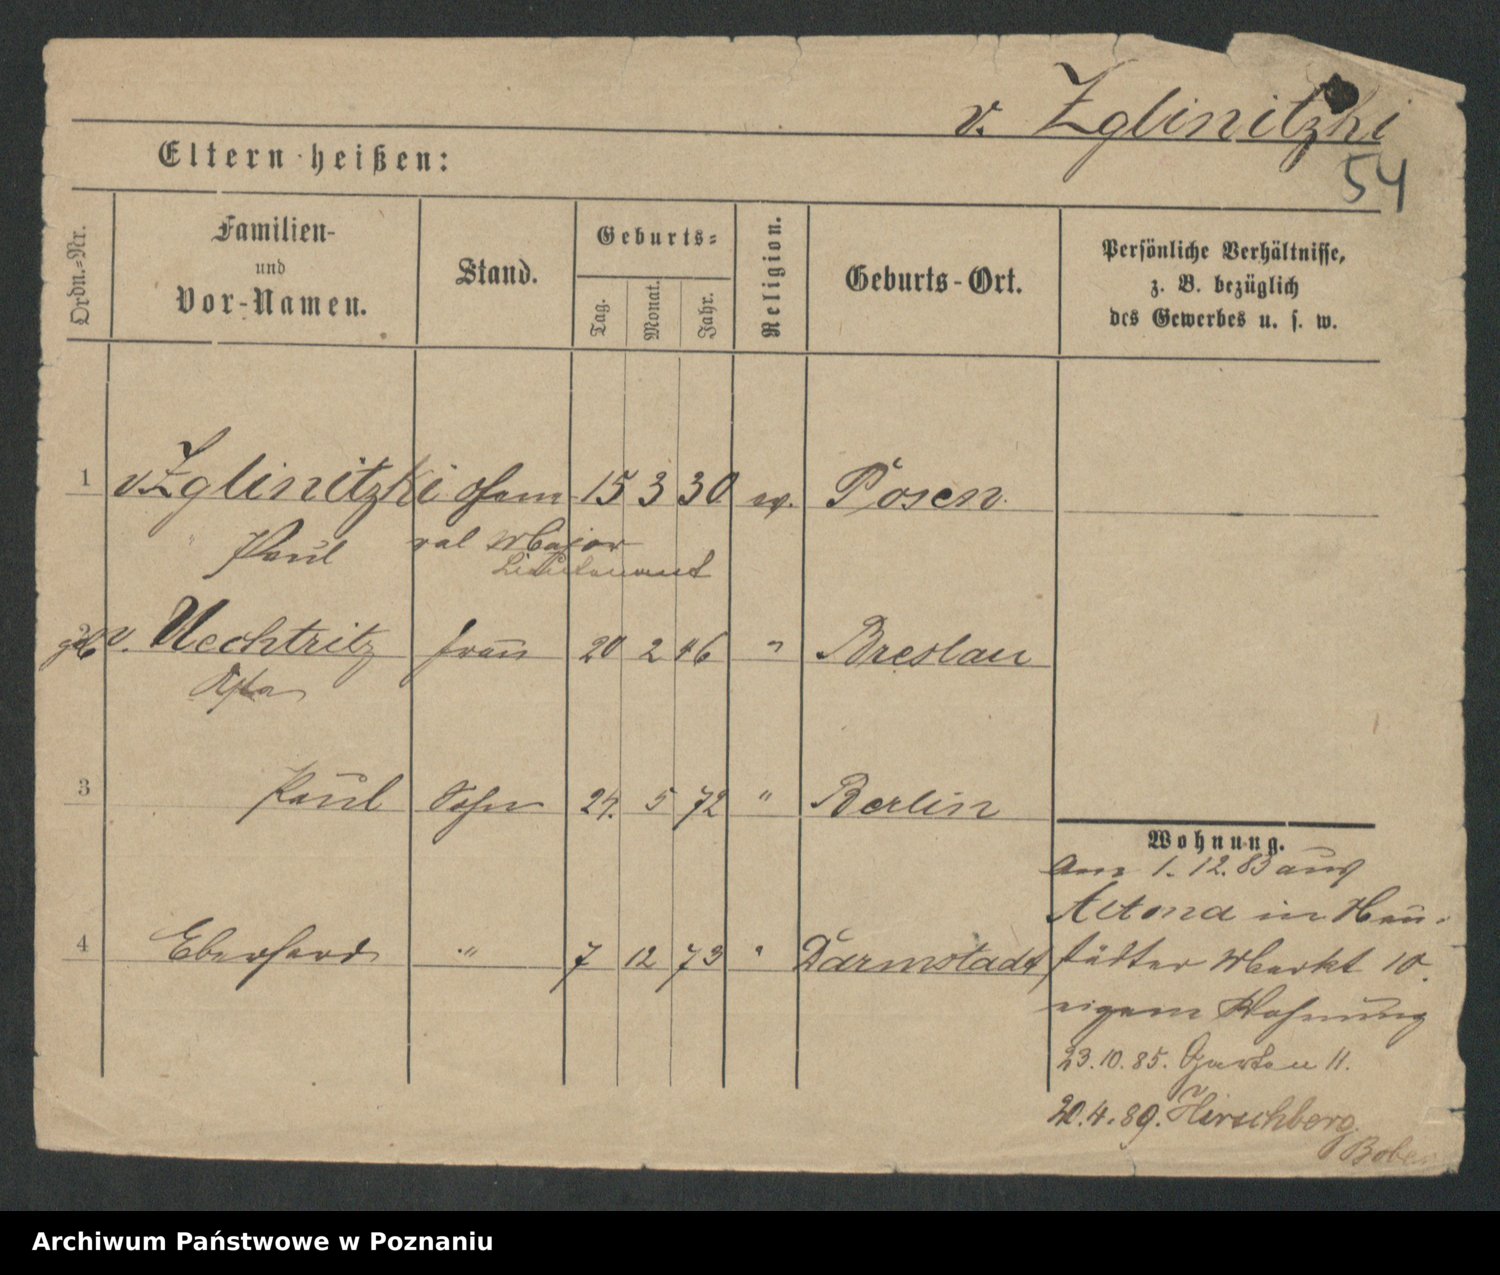 v. Zglinitzki
54
Eltern heißen:
Ordn.-Nr.
Familien-
und
Vor-Namen.
Stand.
Geburts-
Tag.
Monat.
Jahr.
Religion.
Geburts-Ort.
Persönliche Verhältnisse,
z. B. bezüglich
des Gewerbes u. s. w.
1 v Zglinitzki 15 3 30 ev. Posen
Paul ral Major
Lieutenant
2 geb. v. Uechtritz Frau 20 2 46 " Breslau
3 Paul Sohn 24. 5 72 " Berlin
Wohnung.
am 1. 12. 83 aus
Altona in Neu-
4 Eberhard " 7 12 73 " Darmstadt
städter Markt 10.
eigene Wohnung
23. 10. 85. Garten 11.
20. 4. 89. Hirschberg
Bober
Archiwum Państwowe w Poznaniu